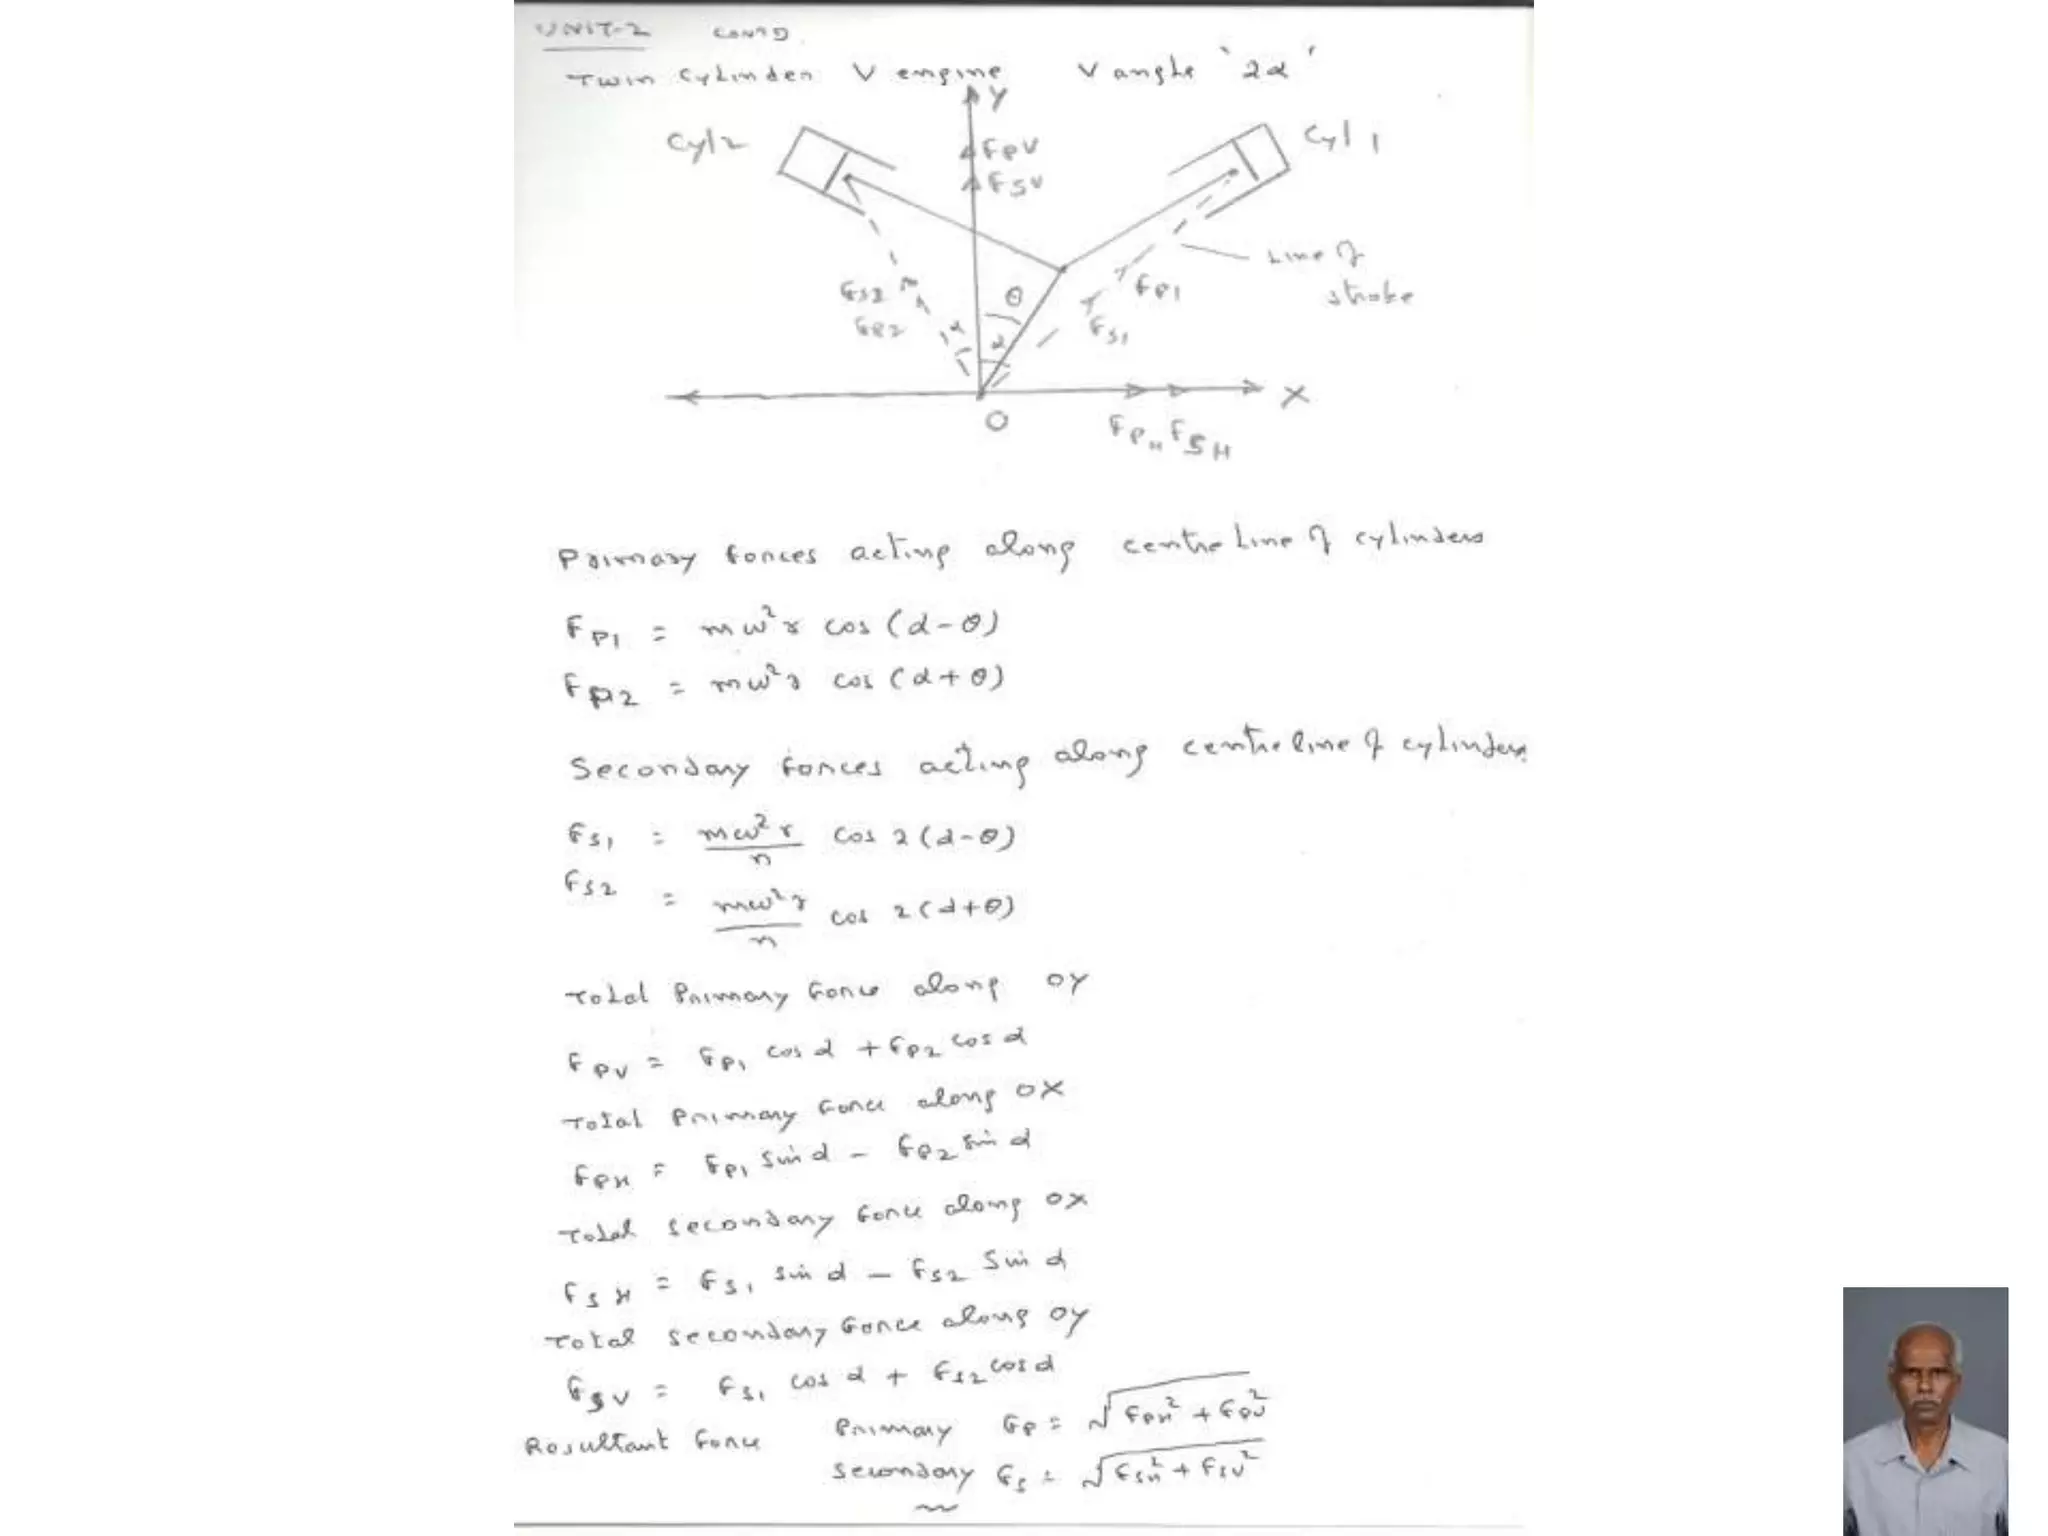 UNIT-2 CONTD
Twin Cylinder V engine V angle '2α'
Y
Cyl2
FPV
Cyl 1
FSV
Line of
stroke
FS2
θ
FP1
FP2
α
α
FS1
X
O
FPH FSH
Primary forces acting along centre line of cylinders
FP1 = mω²r cos (α-θ)
FP2 = mω²r cos (α+θ)
Secondary forces acting along centreline of cylinders
FS1 = mω²r/n cos 2(α-θ)
FS2 = mω²r/n cos 2(α+θ)
Total Primary Force along OY
FPV = FP1 cos α + FP2 cos α
Total Primary Force along OX
FPH = FP1 sin α - FP2 sin α
Total secondary Force along OX
FSH = FS1 sin α - FS2 Sin α
Total secondary Force along OY
FSV = FS1 cos α + FS2 cos α
Resultant Force Primary FP = √FPH² + FPV²
Secondary FS = √FSH² + FSV²